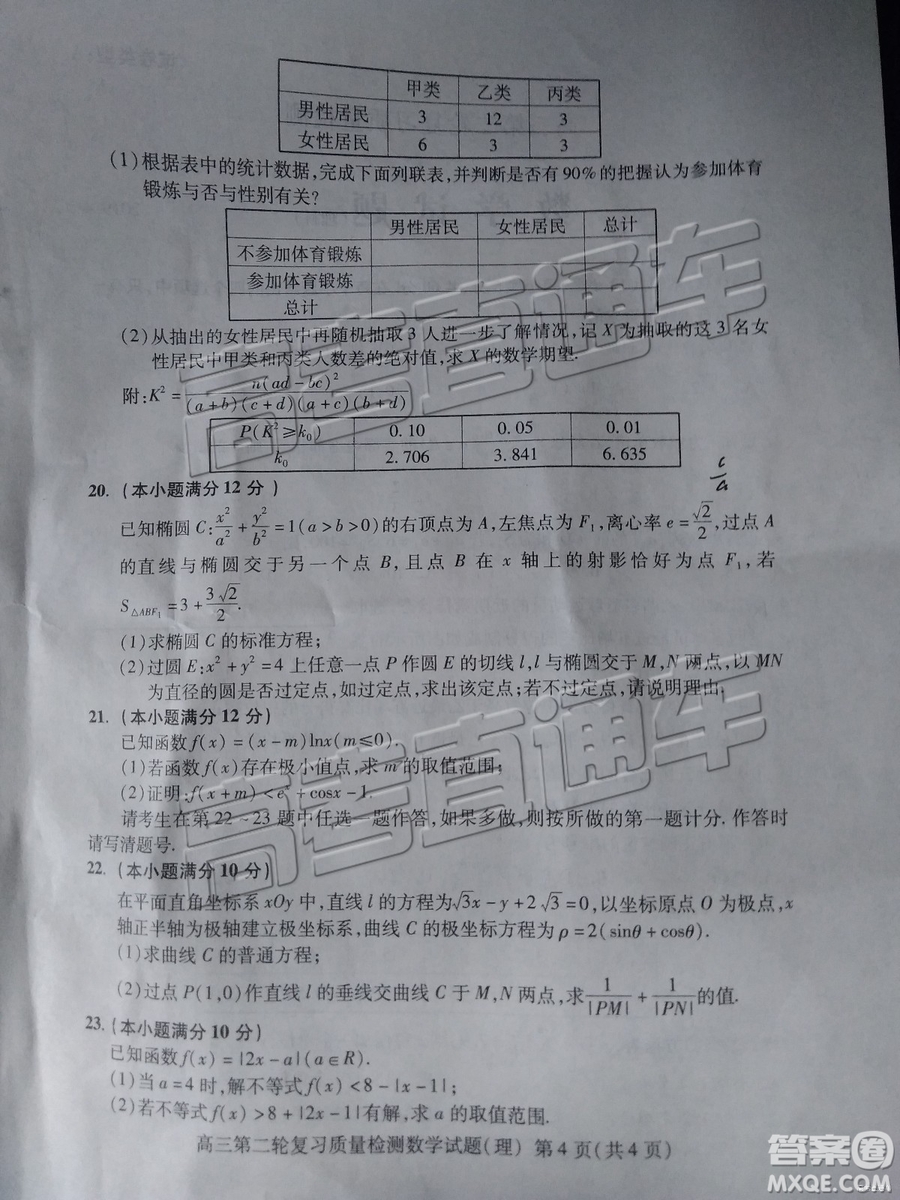 甲类 乙类 丙类
男性居民 3 12 3
女性居民 6 3 3
(1)根据表中的统计数据,完成下面列联表,并判断是否有90%的把握认为参加体育
锻炼与否与性别有关?
男性居民 女性居民 总计
不参加体育锻炼
参加体育锻炼
总计
(2)从抽出的女性居民中再随机抽取3人进一步了解情况,记X为抽取的这3名女
性居民中甲类和丙类人数差的绝对值,求X的数学期望.
附:K²=n(ad-bc)²/(a+b)(c+d)(a+c)(b+d)
P(K²≥k₀) 0.10 0.05 0.01
k₀ 2.706 3.841 6.635
c/a
20.(本小题满分12分)
已知椭圆C:x²/a²+y²/b²=1(a>b>0)的右顶点为A,左焦点为F₁,离心率e=√2/2,过点A
的直线与椭圆交于另一个点B,且点B在x轴上的射影恰好为点F₁,若
S△ABF₁=3+3√2/2.
(1)求椭圆C的标准方程;
(2)过圆E:x²+y²=4上任意一点P作圆E的切线l,l与椭圆交于M,N两点,以MN
为直径的圆是否过定点,如过定点,求出该定点;若不过定点,请说明理由.
21.(本小题满分12分)
已知函数f(x)=(x-m)lnx(m≤0).
(1)若函数f(x)存在极小值点,求m的取值范围;
(2)证明:f(x+m)<eˣ+cosx-1.
请考生在第22~23题中任选一题作答,如果多做,则按所做的第一题计分.作答时
请写清题号.
22.(本小题满分10分)
在平面直角坐标系xOy中,直线l的方程为√3x-y+2√3=0,以坐标原点O为极点,x
轴正半轴为极轴建立极坐标系,曲线C的极坐标方程为ρ=2(sinθ+cosθ).
(1)求曲线C的普通方程;
(2)过点P(1,0)作直线l的垂线交曲线C于M,N两点,求1/|PM|+1/|PN|的值.
23.(本小题满分10分)
已知函数f(x)=|2x-a|(a∈R).
(1)当a=4时,解不等式f(x)<8-|x-1|;
(2)若不等式f(x)>8+|2x-1|有解,求a的取值范围.
高三第二轮复习质量检测数学试题(理) 第4页(共4页)
高考直通车
高考直通车
答案圈
MXQE.COM